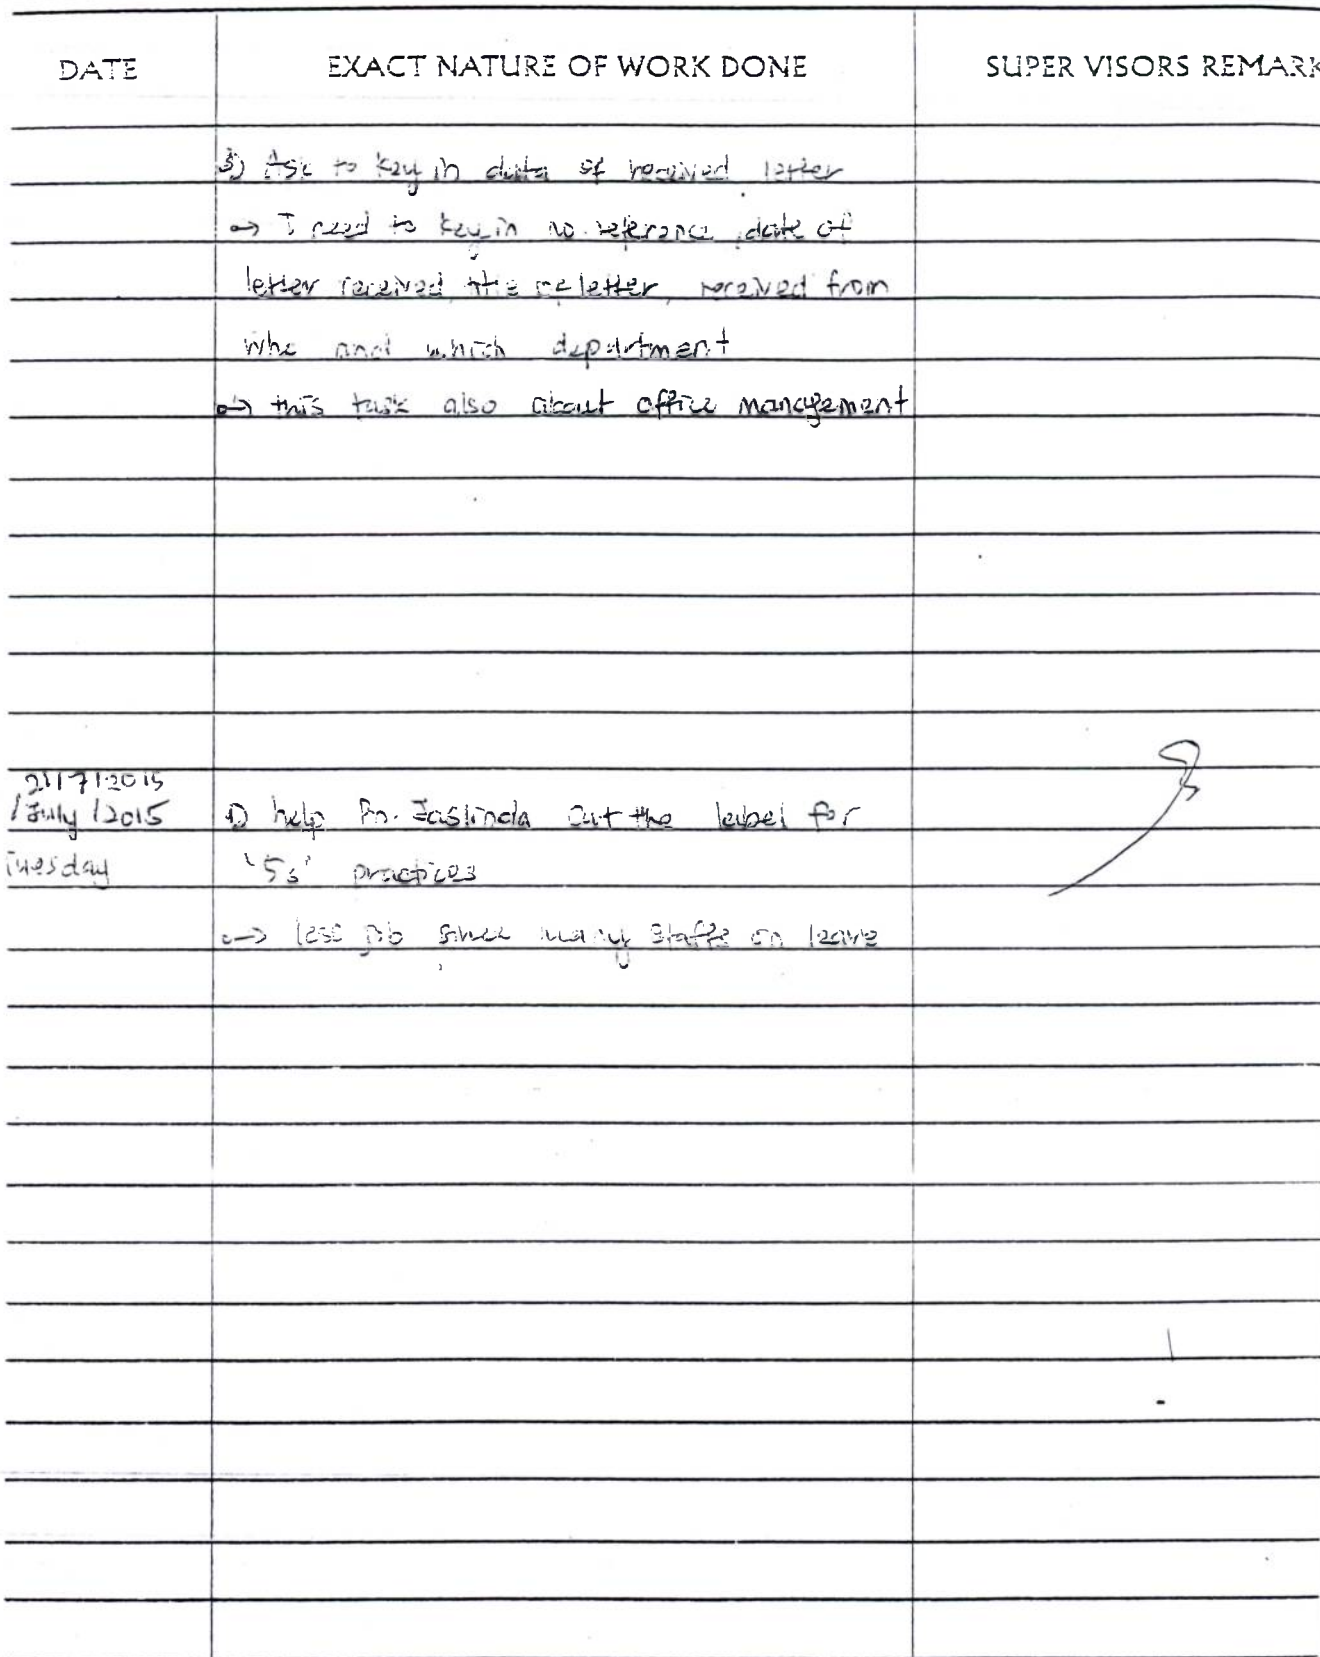 DATE EXACT NATURE OF WORK DONE SUPER VISORS REMARK
3) Ask to key in data of received letter
→ I need to key in no. reference, date of
letter received, letter, received from
who and which department
→ this task also about office management
21/7/2015
/July/2015 1) help Pn. Jaslinda cut the label for
Tuesday '5s' practices
→ less job since many staffs on leave